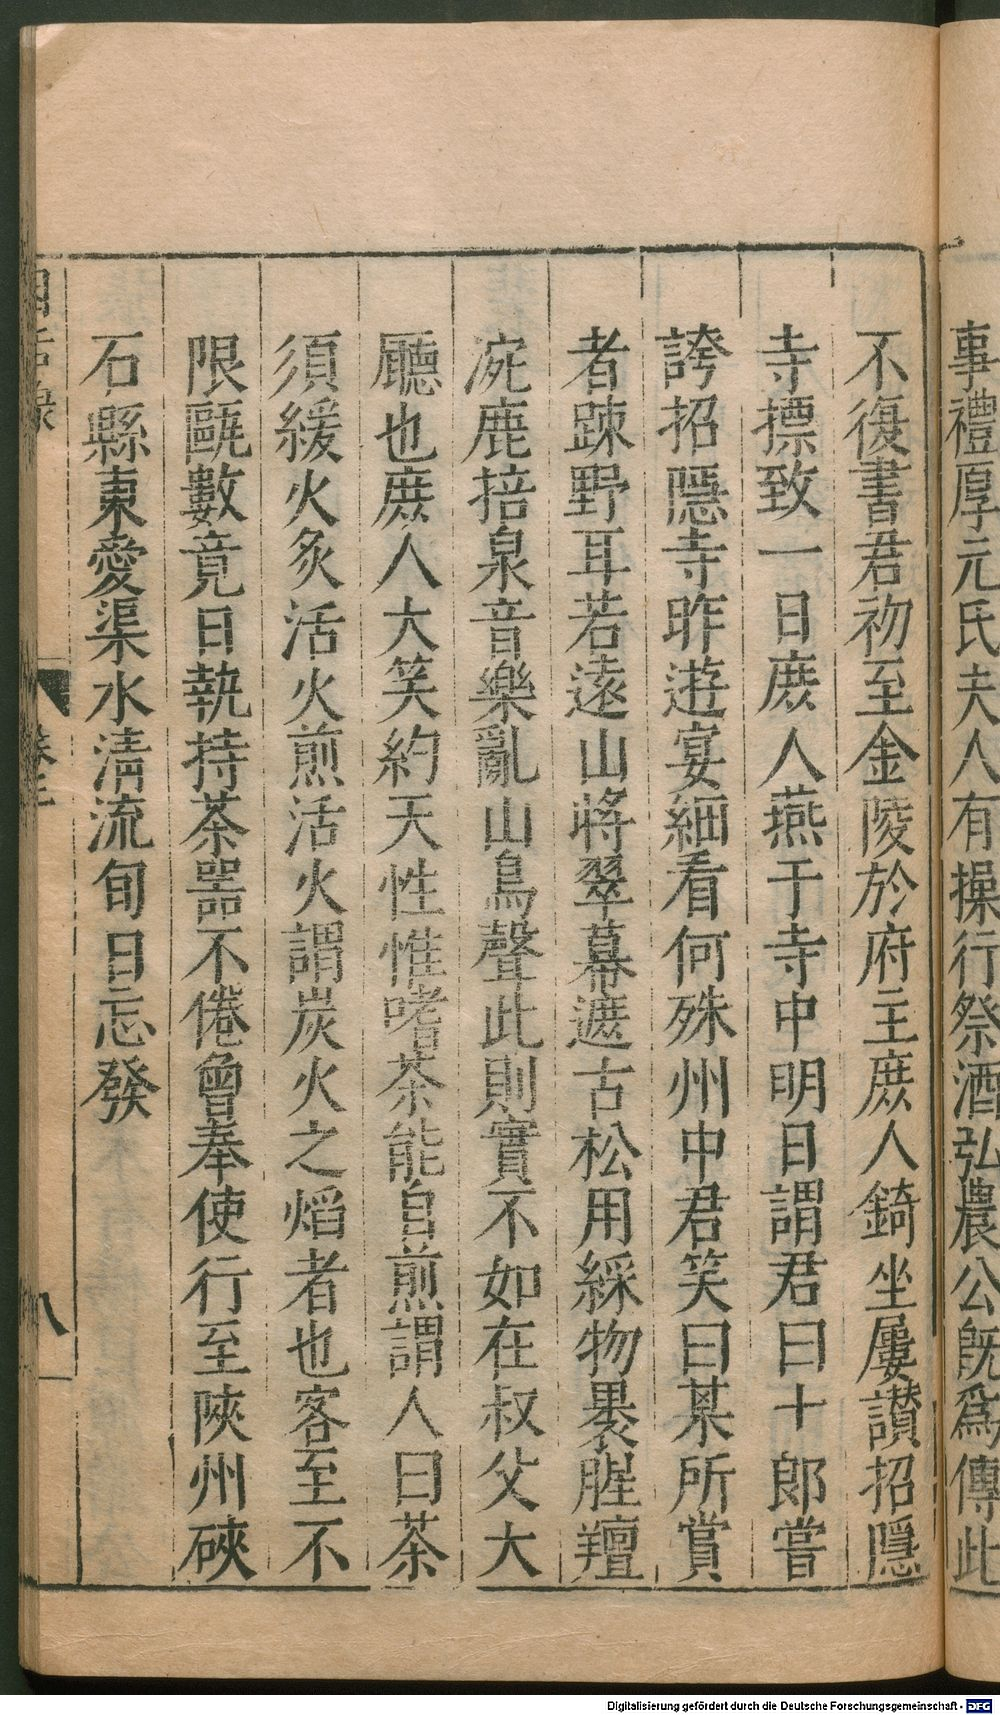 事禮厚元氏夫人有操行祭酒弘農公旣爲傳此
不復書君初至金陵於府主庶人錡坐屢讃招隱
寺摽致一日庶人燕于寺中明日謂君曰十郎嘗
誇招隱寺昨遊宴細看何殊州中君笑曰某所賞
者踈野耳若遠山將翠幕遮古松用綵物褁腥羶
涴鹿掊泉音樂亂山鳥聲此則實不如在叔父大
廳也庶人大笑約天性惟嗜茶能自煎謂人曰茶
須緩火炙活火煎活火謂炭火之熖者也客至不
限甌數竟日執持茶噐不倦曾奉使行至陜州硤
石縣東愛渠水清流旬日忘發
因話錄
卷二
八
Digitalisierung gefördert durch die Deutsche Forschungsgemeinschaft - DFG